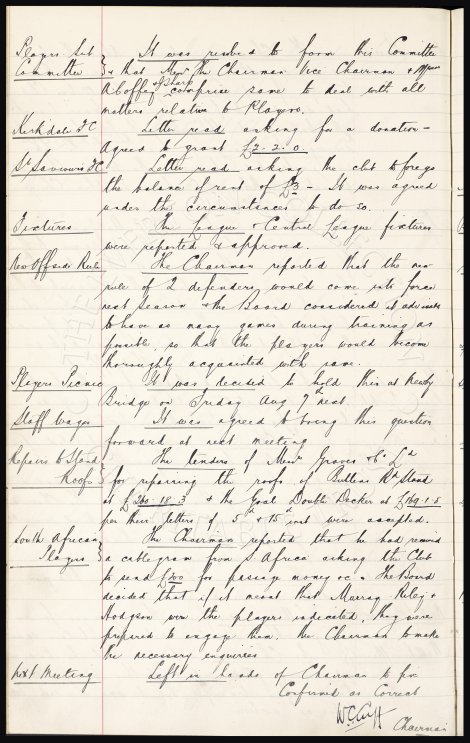 Players Sub It was resolved to form this Committee
Committee & that the Chairman Vice Chairman &
& Sharp
comprise same to deal with all
matters relative to Players.
Kirkdale F C Letter read asking for a donation –
Agreed to grant £2.2.0.
St Saviours F C Letter read asking the club to forego
the balance of rent of £3 – It was agreed
under the circumstances to do so.
Fixtures The League & Central League fixtures
were reported & approved.
New Offside Rule The Chairman reported that the new
rule of 2 defenders would come into force
next season & the Board considered it advisable
to have as many games during training as
possible, so that the players would become
thoroughly acquainted with same.
Players Picnic It was decided to hold this at Newby
Bridge on Friday Aug 7th next.
Staff Wages It was agreed to bring this question
forward at next meeting
Repairs to Stand The tenders of Messrs Groves & Co Ld
Roofs for repairing the roofs of Bullens Rd Stand
at £260.18.3 & the Goal Double Decker at £169.1.5
per their letters of 5th & 15th inst were accepted.
South African The Chairman reported that he had received
Players a cablegram from S. Africa asking the Club
to send £200 for passage money &c – The Board
decided that if it meant that Murray Riley &
Hodgson were the players indicated, they were
prepared to engage them, the Chairman to make
the necessary enquiries
Next Meeting Left in hands of Chairman to fix
Confirmed as Correct
W C Cuff
Chairman